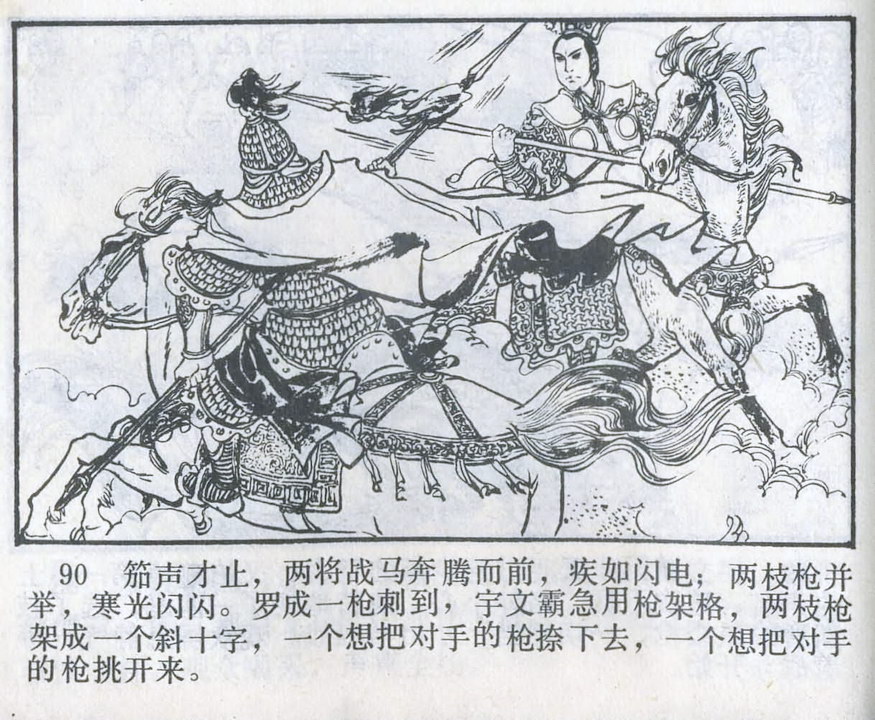 90 笳声才止，两将战马奔腾而前，疾如闪电；两枝枪并
举，寒光闪闪。罗成一枪刺到，宇文霸急用枪架格，两枝枪
架成一个斜十字，一个想把对手的枪捺下去，一个想把对手
的枪挑开来。